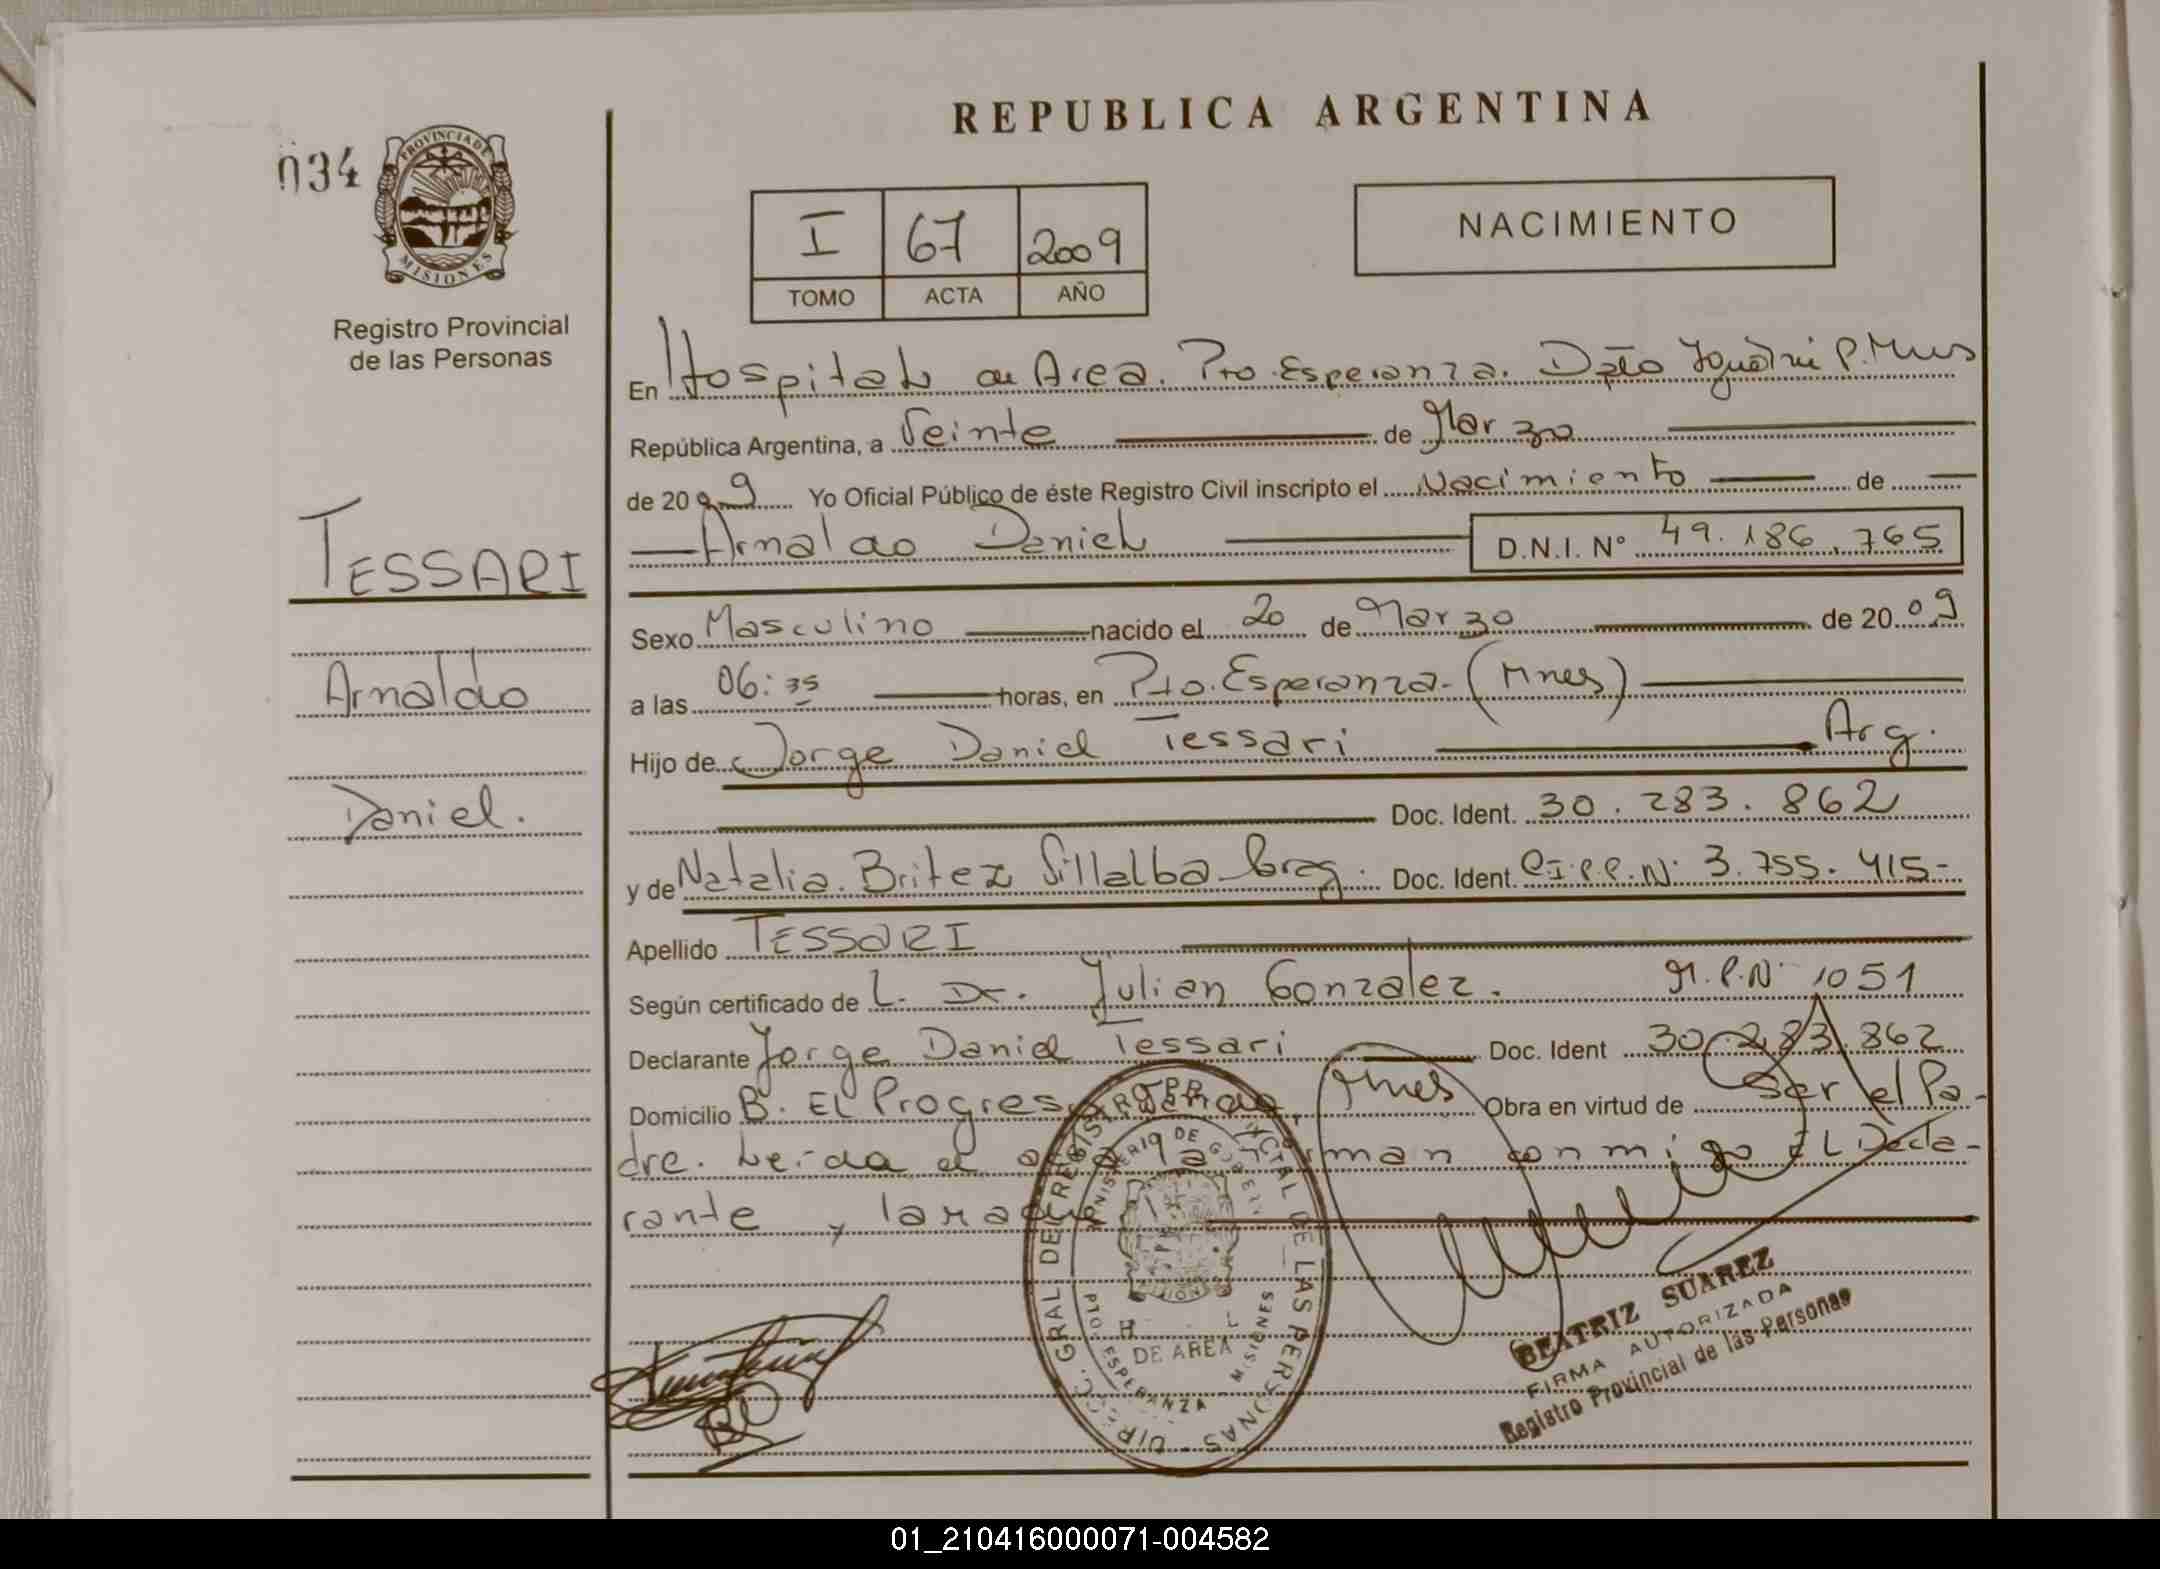 REPUBLICA ARGENTINA
034
PROVINCIA DE
MISIONES
Registro Provincial
de las Personas
I 67 2009
TOMO ACTA AÑO
NACIMIENTO
TESSARI
Arnaldo
Daniel.
En Hospital de Area. Pto. Esperanza. Dpto Iguazú P. Mnes
República Argentina, a Veinte de Marzo
de 2009 Yo Oficial Público de éste Registro Civil inscripto el Nacimiento de
Arnaldo Daniel D.N.I. N° 49.186.765
Sexo Masculino nacido el 20 de Marzo de 2009
a las 06:35 horas, en Pto. Esperanza - (Mnes)
Hijo de Jorge Daniel Tessari Arg.
Doc. Ident. 30.283.862
y de Natalia Britez Villalba Doc. Ident. C.I.P.P.N° 3.755.415-
Apellido TESSARI
Según certificado de L. Dr. Julian Gonzalez. M.P.N° 1051
Declarante Jorge Daniel Tessari Doc. Ident 30.283.862
Domicilio B. El Progreso Mnes Obra en virtud de Ser el Pa-
dre. Leida el acta la firman conmigo El Decla-
rante y la madre
DIRECC. GRAL DEL REGISTRO PROVINCIAL DE LAS PERSONAS
MINISTERIO DE GOBIERNO
DE AREA
PTO. ESPERANZA - MISIONES
BEATRIZ SUAREZ
FIRMA AUTORIZADA
Registro Provincial de las Personas
01_210416000071-004582